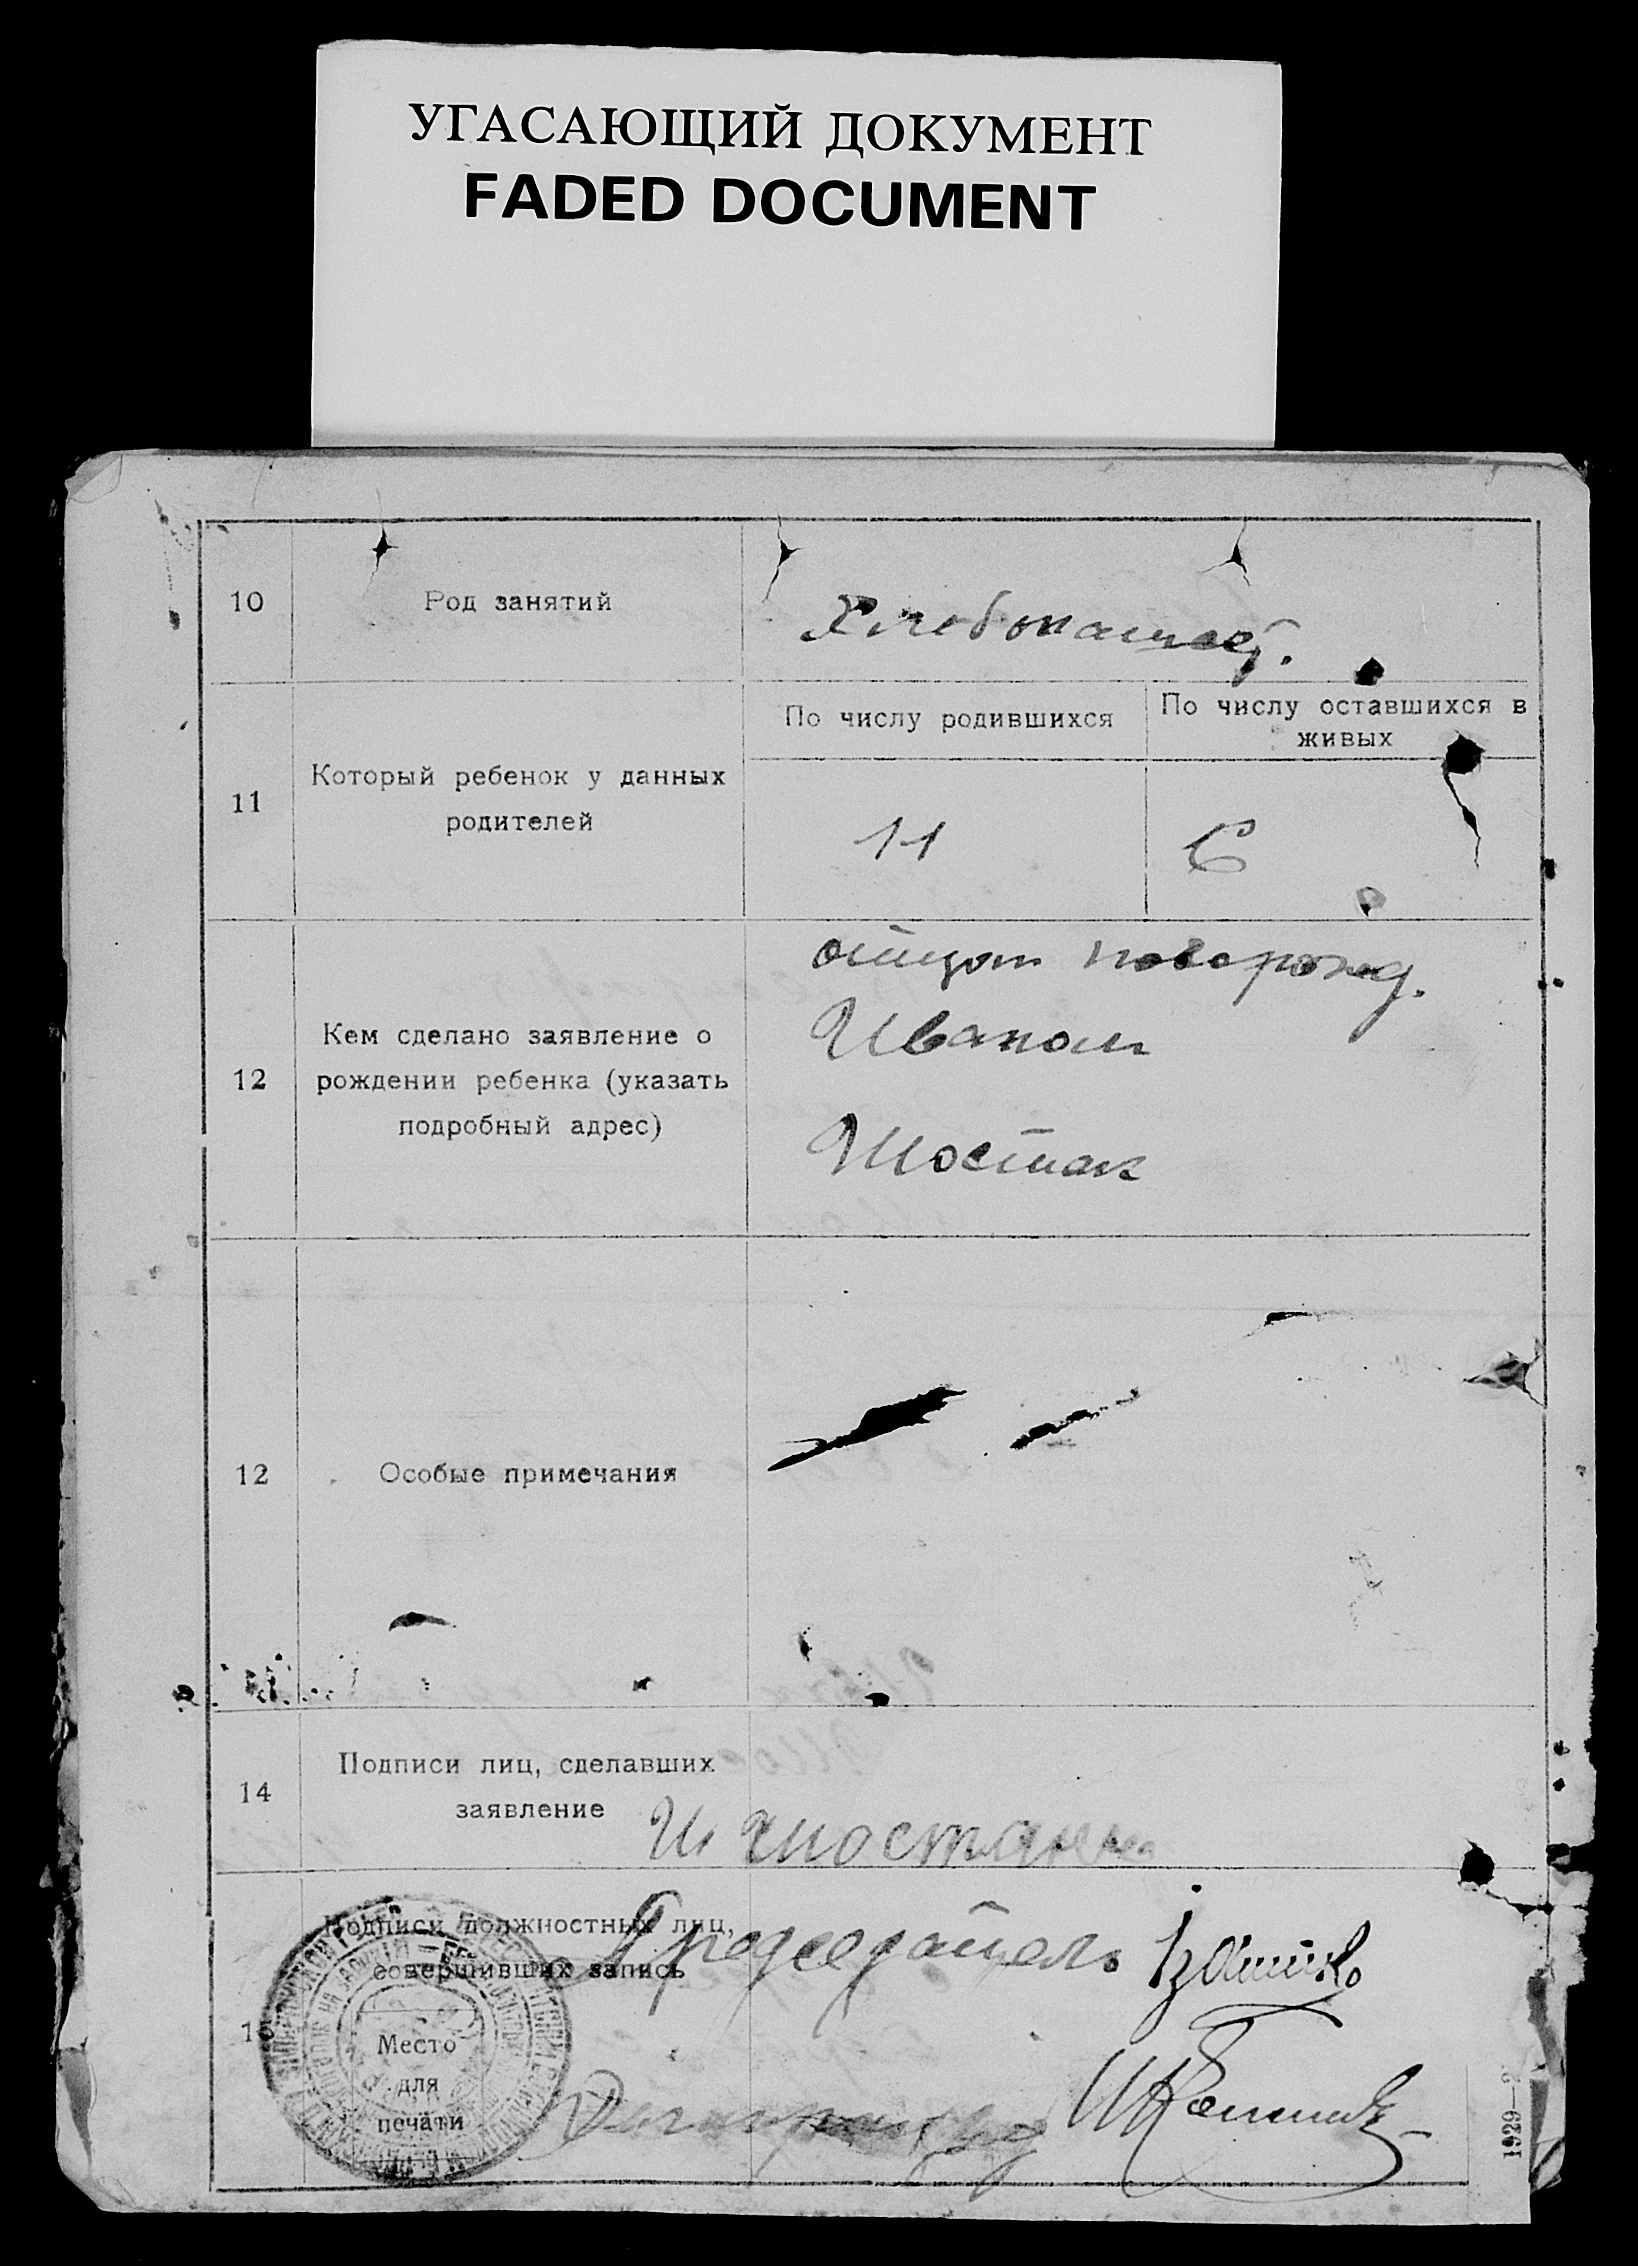 УГАСАЮЩИЙ ДОКУМЕНТ
FADED DOCUMENT
10
Род занятий
Хлебопашец.
11
Который ребенок у данных
родителей
По числу родившихся
По числу оставшихся в
живых
11
6
12
Кем сделано заявление о
рождении ребенка (указать
подробный адрес)
отцом новорожд.
Иваном
Шостак
12
Особые примечания
14
Подписи лиц, сделавших
заявление
И Шостак
Подписи должностных лиц,
совершивших запись
Председатель
Место
для
печати
1929—2